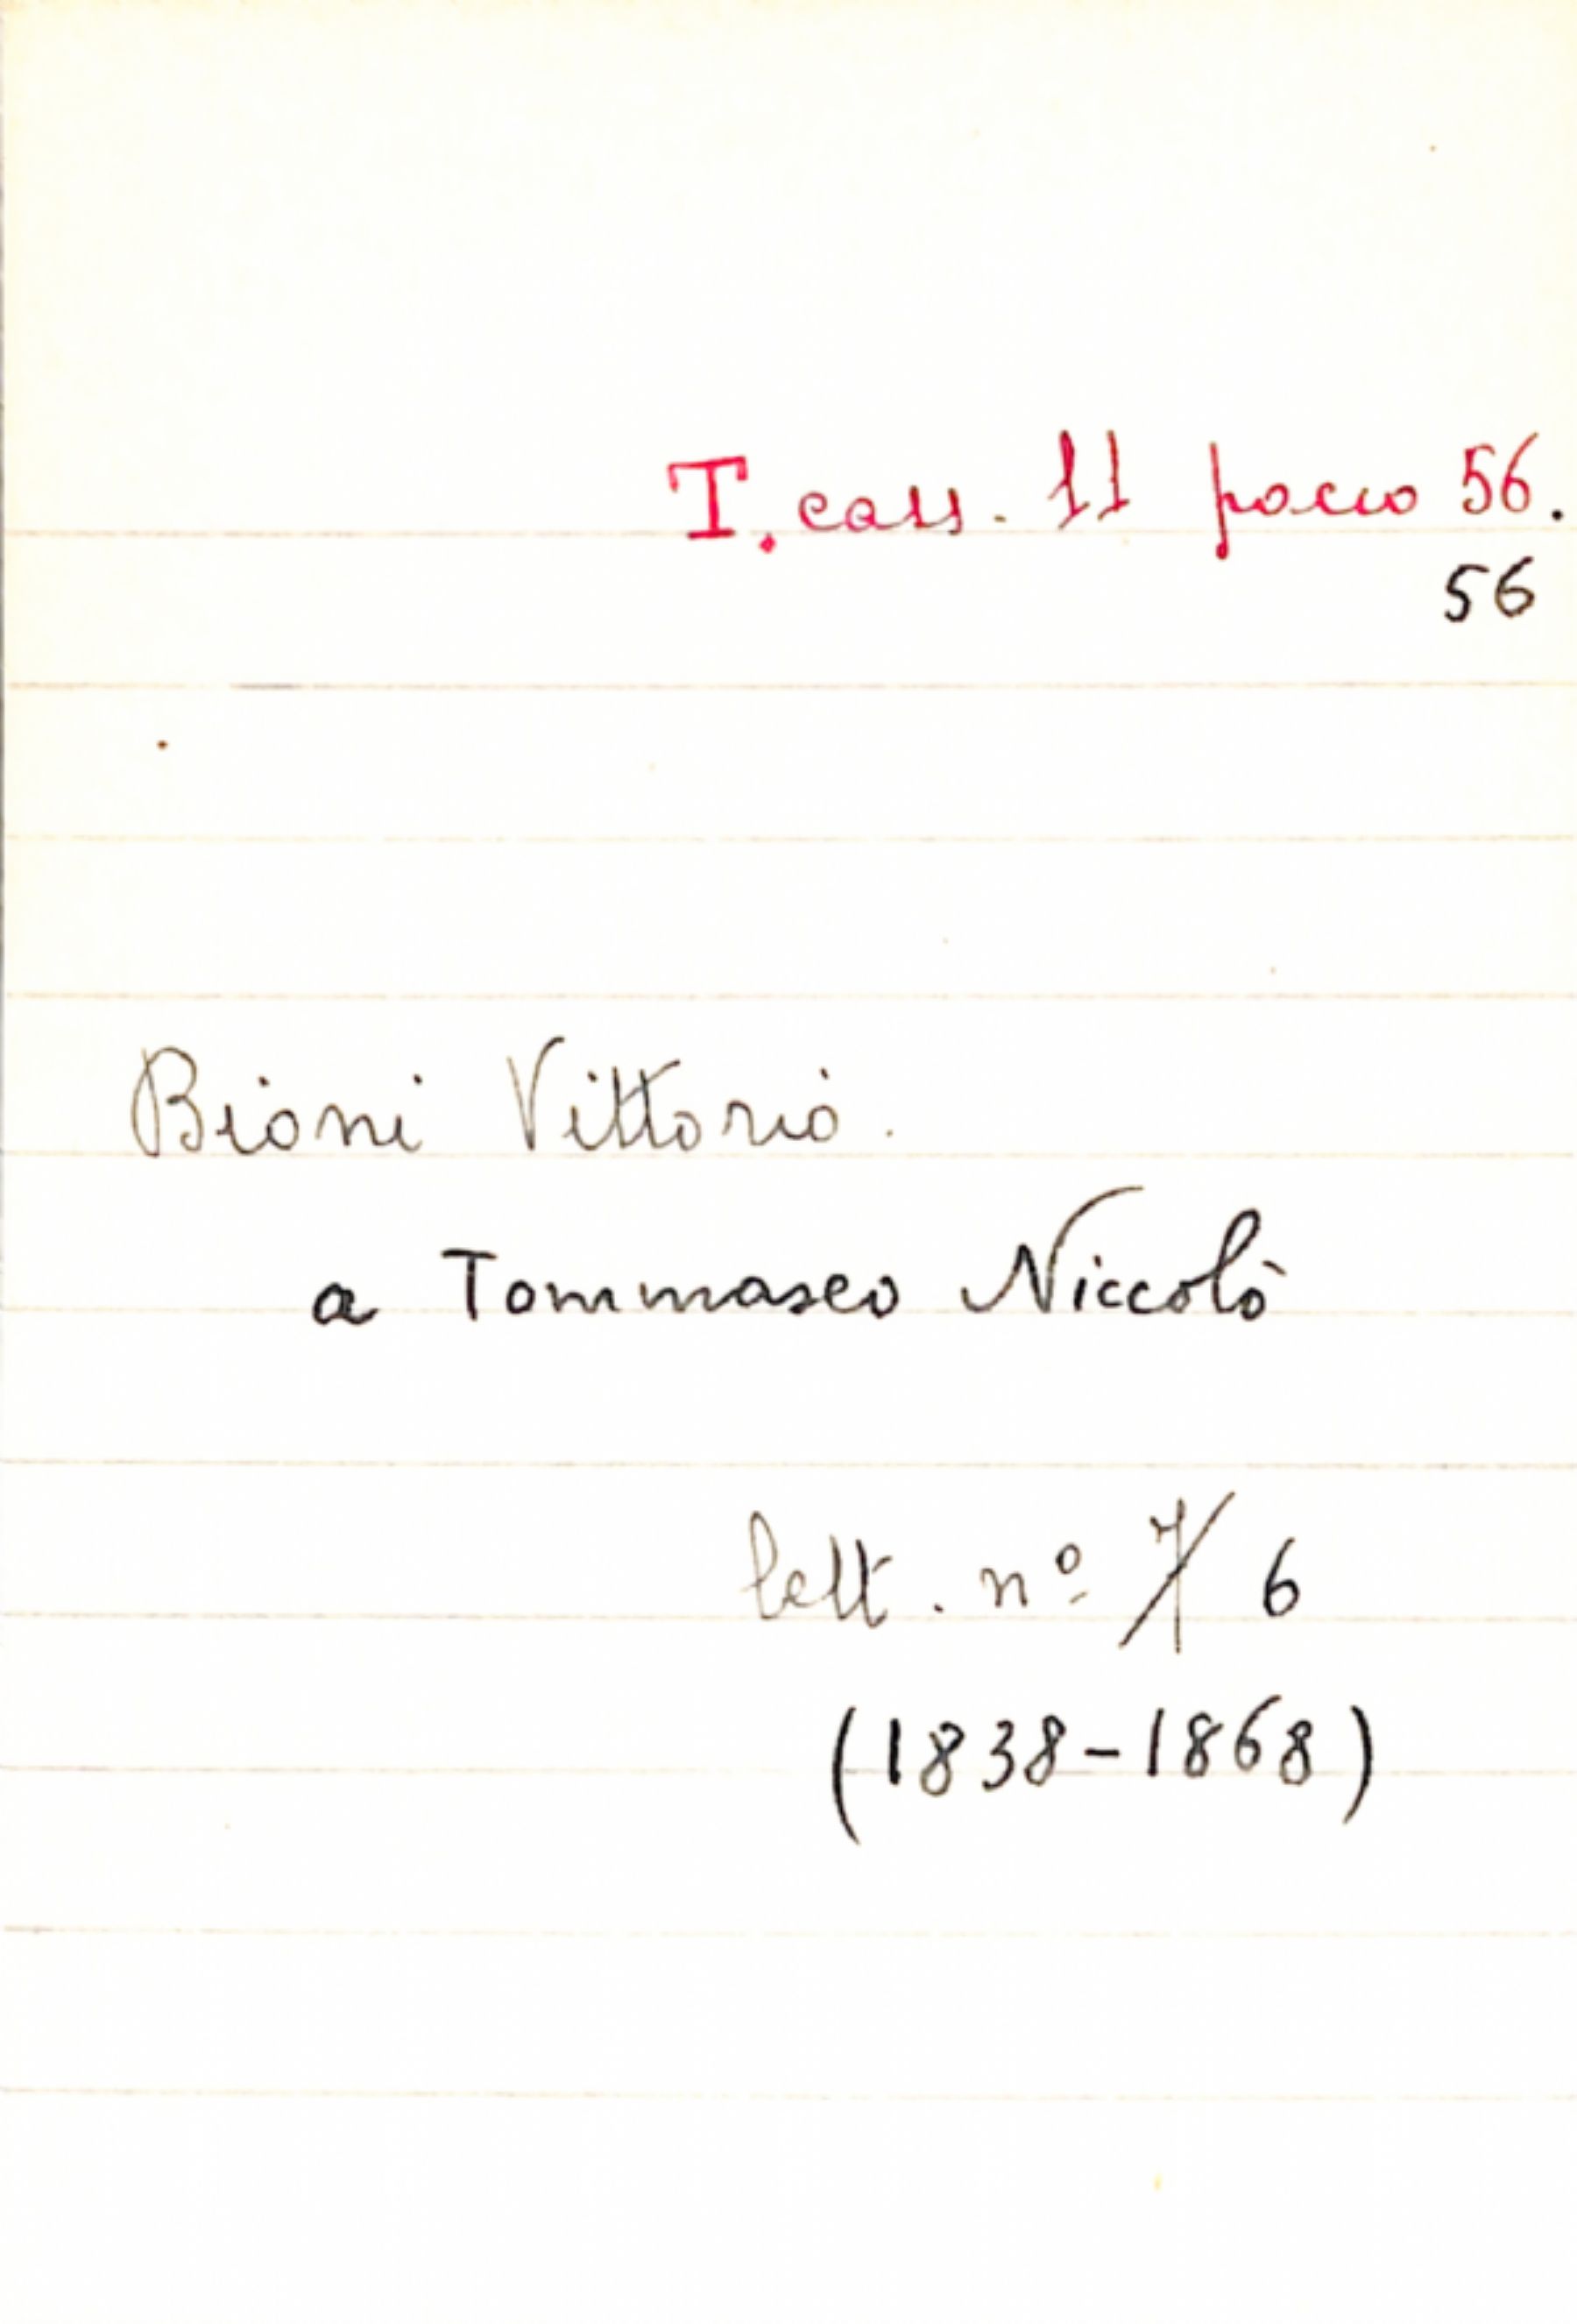 T. cass. 11 pacco 56.
56
Bioni Vittorio.
a Tommaseo Niccolò
lett. nº 7 6
(1838-1868)